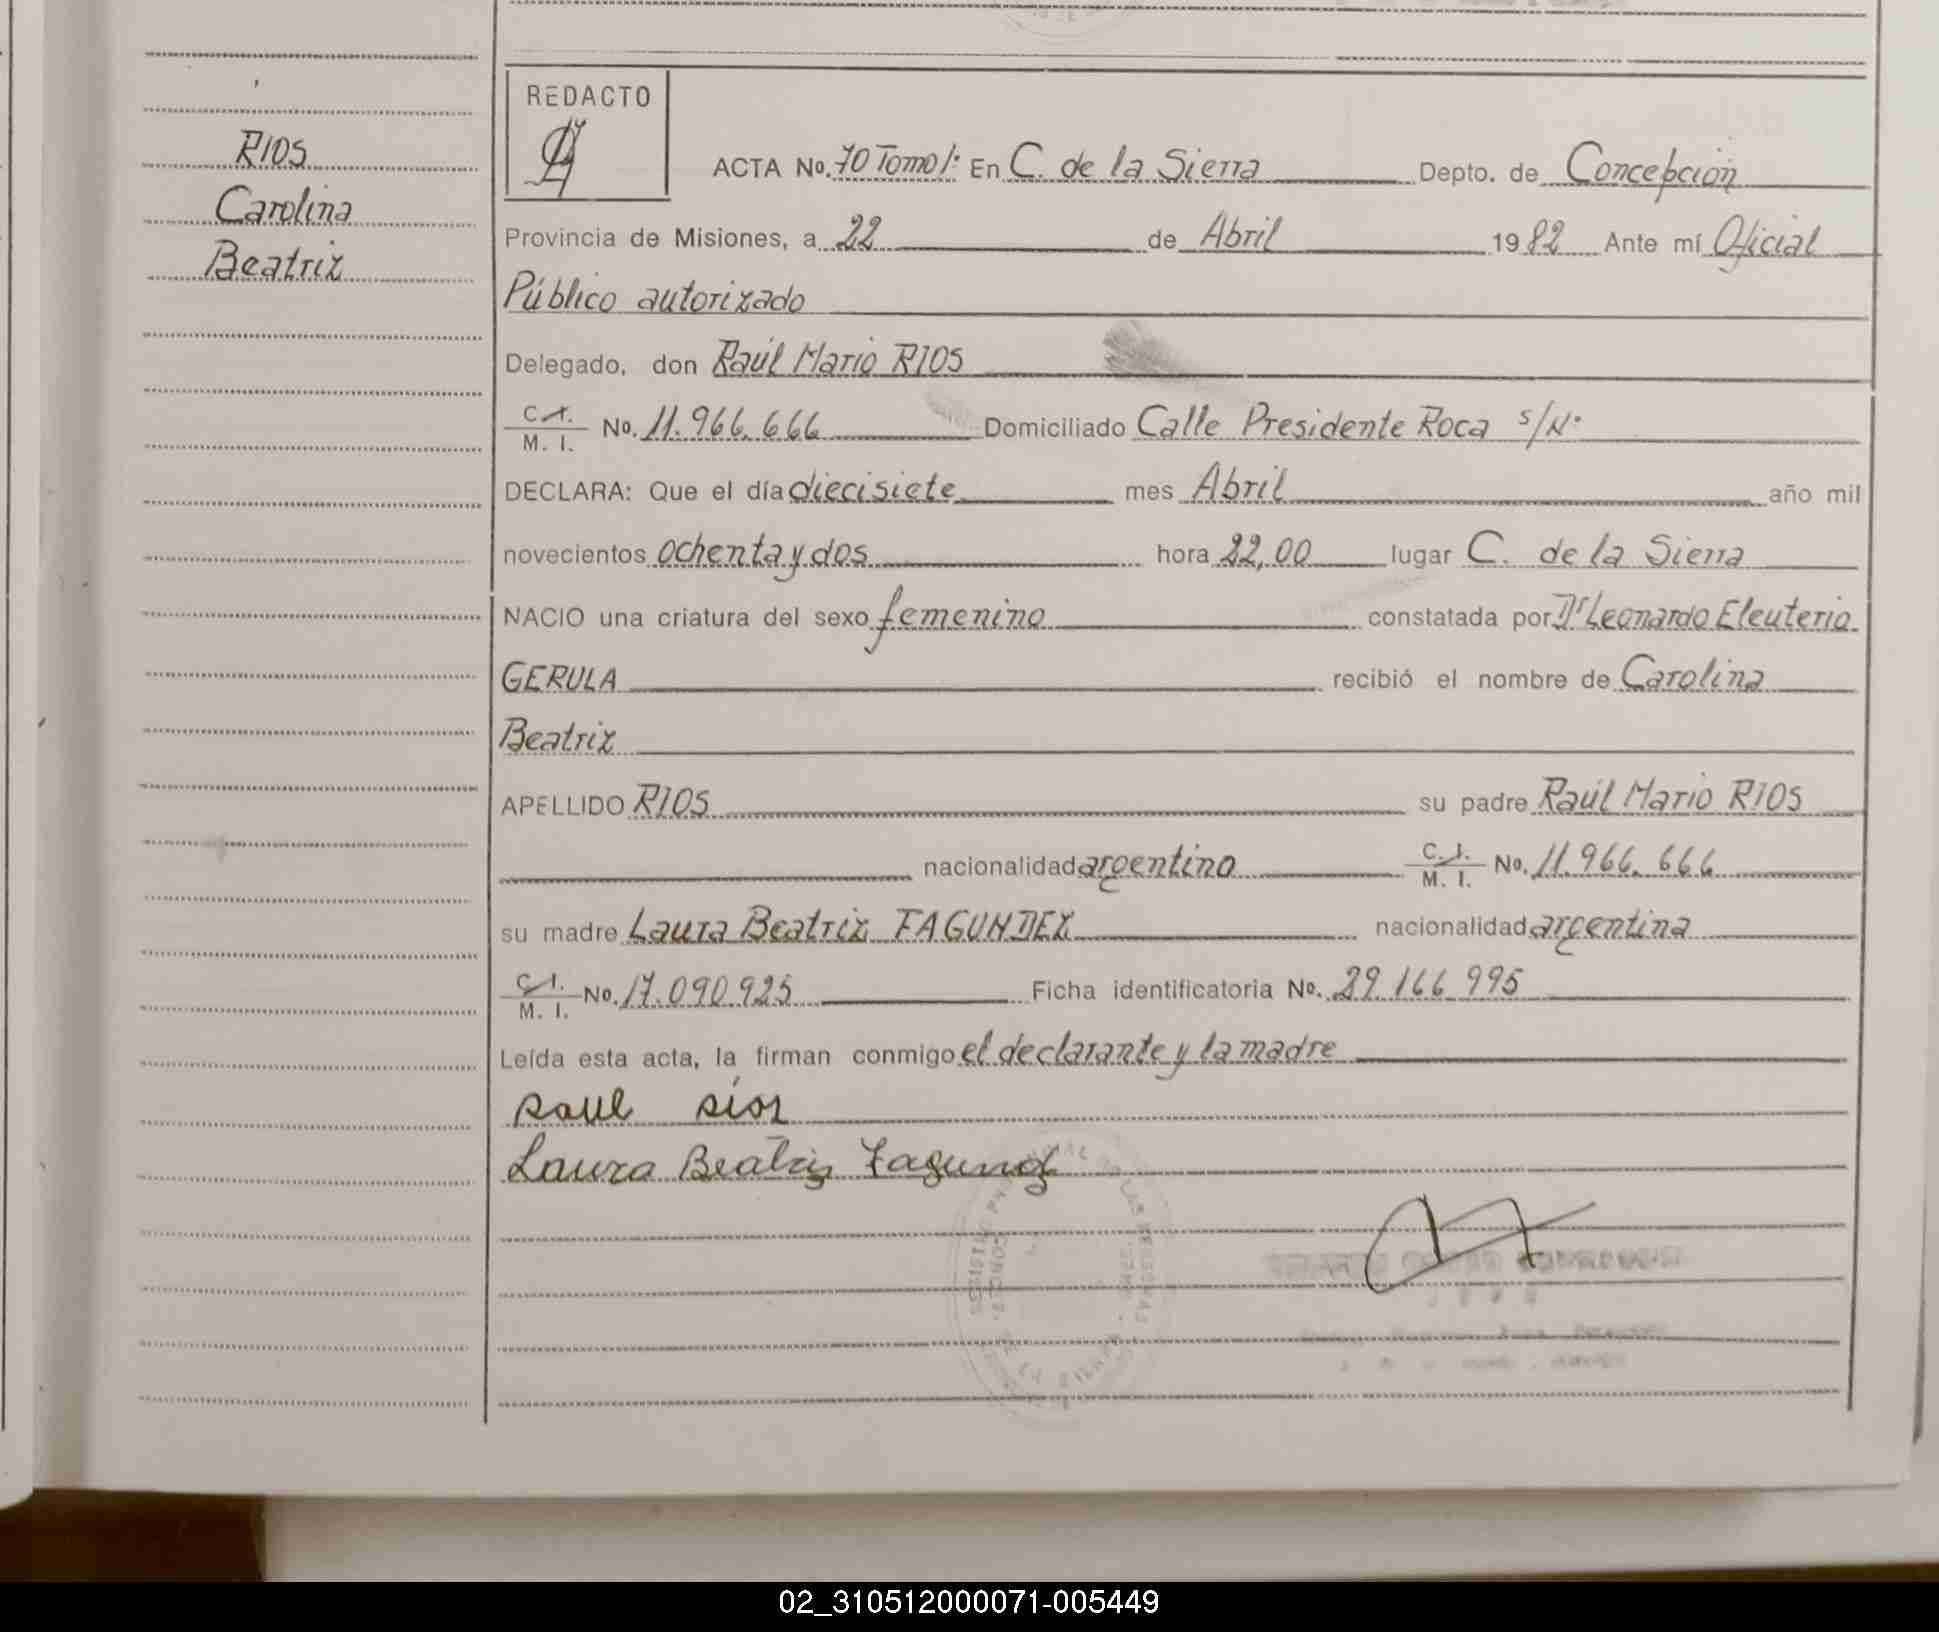 RIOS
Carolina
Beatriz
REDACTO
ACTA No. 70 Tomo 1: En C. de la Sierra Depto. de Concepción
Provincia de Misiones, a 22 de Abril 1982 Ante mí Oficial
Público autorizado
Delegado, don Raúl Mario RIOS
C. I. M. I. No. 11.966.666 Domiciliado Calle Presidente Roca s/Nº
DECLARA: Que el día diecisiete mes Abril año mil
novecientos ochenta y dos hora 22,00 lugar C. de la Sierra
NACIO una criatura del sexo femenino constatada por Dr Leonardo Eleuterio
GERULA recibió el nombre de Carolina
Beatriz
APELLIDO RIOS su padre Raúl Mario RIOS
nacionalidad argentino C. I. M. I. No. 11.966.666
su madre Laura Beatriz FAGUNDEZ nacionalidad argentina
C. I. M. I. No. 17.090.925 Ficha identificatoria No. 29.166.995
Leída esta acta, la firman conmigo el declarante y la madre
Raul Rios
Laura Beatriz Fagundez
02_310512000071-005449